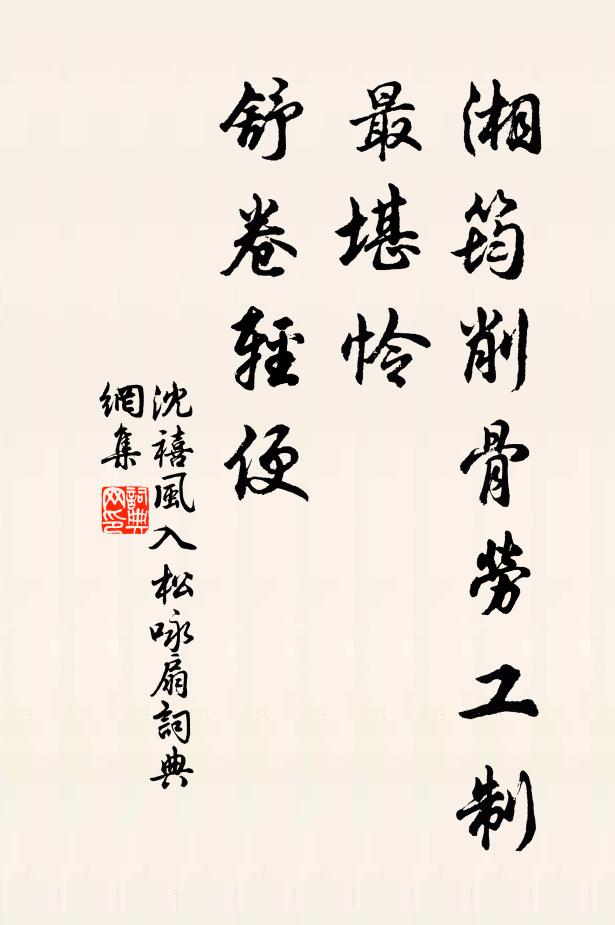 湘筠削骨勞工制
最堪怜
舒卷輕便
沈禧風入松咏扇詞典
網集
詞典
网印